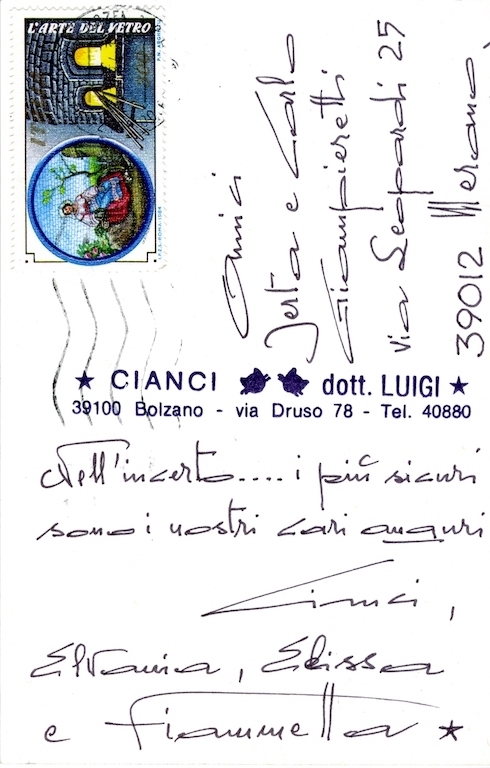 L'ARTE DEL VETRO
Amici
Jerta e Carlo
Giampieretti
via Leopardi 25
39012 Merano
★ CIANCI dott. LUIGI ★
39100 Bolzano - via Druso 78 - Tel. 40880
Nell'incerto.... i più sicuri
sono i nostri cari auguri
Cianci,
Elvania, Elissa
e Fiammetta ★